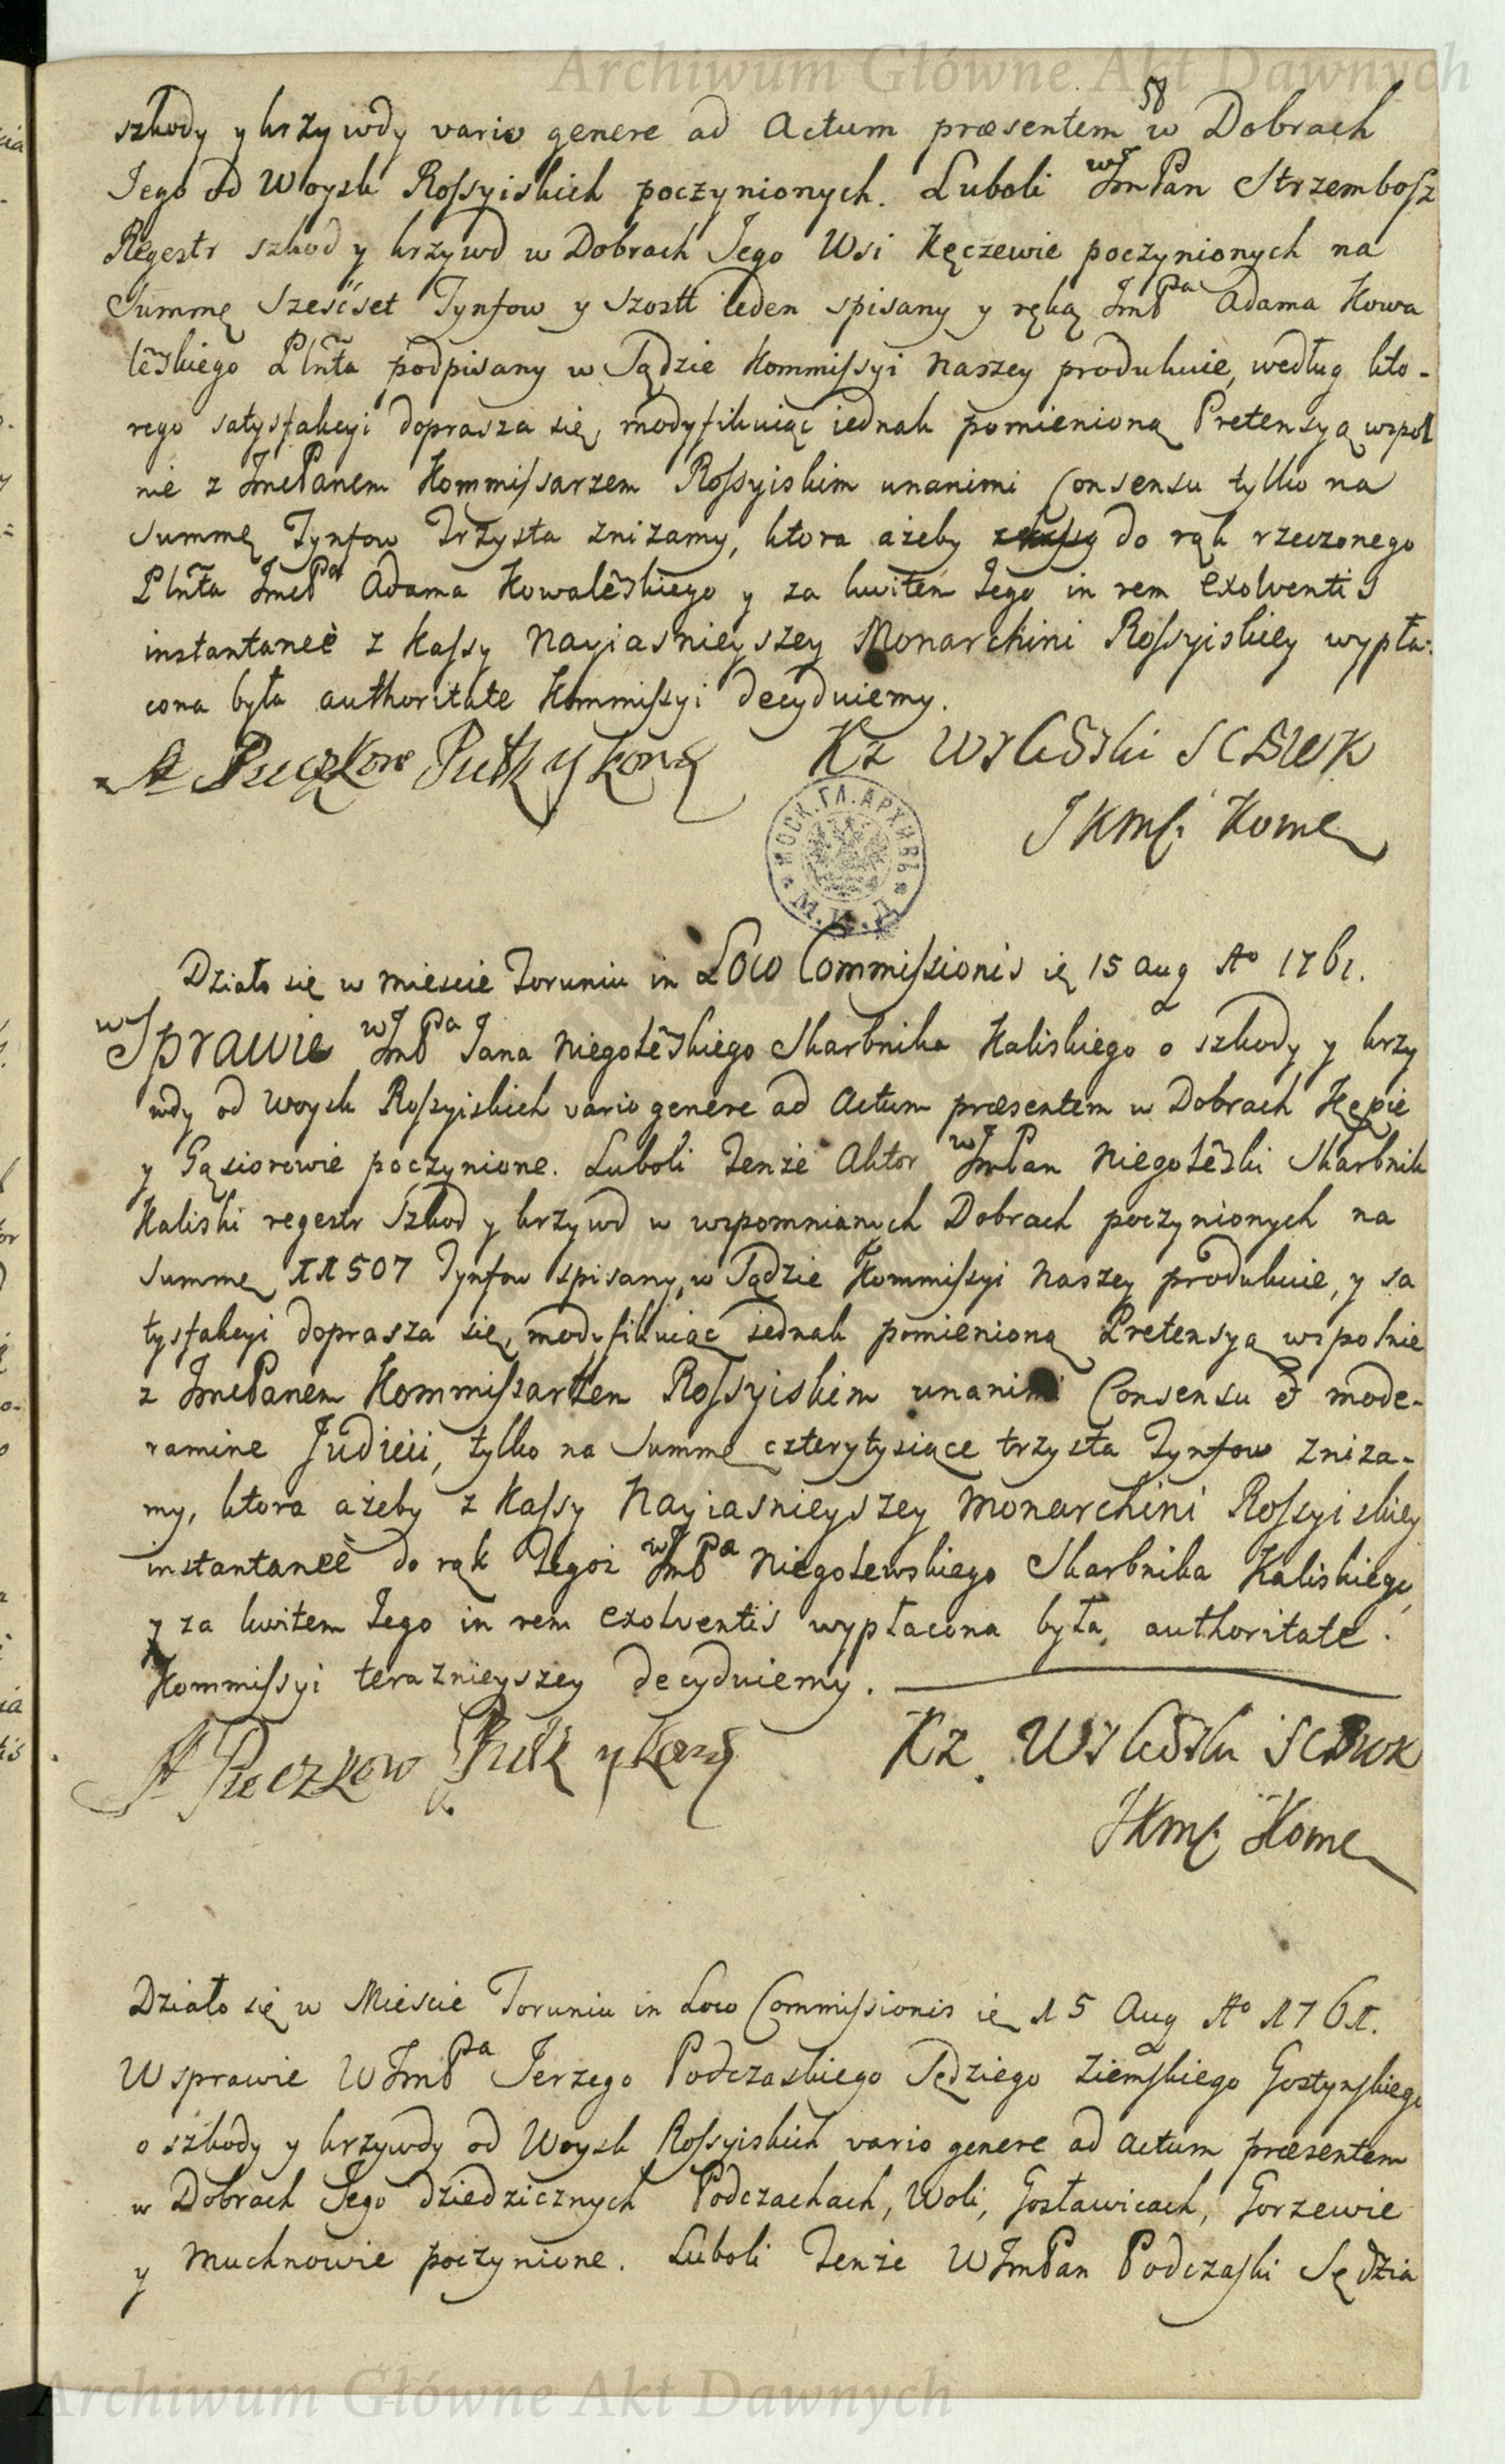 Archiwum Główne Akt Dawnych
58
szkody y krzywdy vario genere ad Actum præsentem w Dobrach
Jego od Woysk Rossyiskich poczynionych. Luboli WJmPan Strzembosz
Regestr szkod y krzywd w Dobrach Jego Wsi Kęczewie poczynionych na
Summę Sześćset Tynfow y szostt ieden spisany y ręką JmPa Adama Kowa
lẽskiego Plnta podpisany w Sądzie Kommissyi Naszey produkuie, według kto-
rego satysfakcyi doprasza się, modyfikuiąc iednak pomienioną Pretensyą wspol
nie z JmcPanem Kommissarzem Rossyiskim unanimi Consensu tylko na
Summę Tynfow Trzysta zniżamy, ktora ażeby do rąk rzeczonego
Plnta JmcPa Adama Kowalẽskiego y za kwitem Jego in rem exolventis
instantaneè z Kassy Nayiasnieyszey Monarchini Rossyiskiey wypła-
cona była authoritate Kommissyi decyduiemy.
A Pieczkow Pułk y kom
Kz SCBWK
JKMsi Kome
МОСК. ГЛ. АРХИВЪ
М.И.Д.
Działo się w Miescie Toruniu in Loco Commissionis ię 15 Aug Ao 1761.
w Sprawie WJmPa Jana Niegolẽskiego Skarbnika Kaliskiego o szkody y krzy
wdy od Woysk Rossyiskich vario genere ad Actum præsentem w Dobrach Kępie
y Gąsiorowie poczynione. Luboli Tenże Aktor WJmPan Niegolẽski Skarbnik
Kaliski regestr Szkod y krzywd w wspomnianych Dobrach poczynionych na
Summę 11507 Tynfow spisany, w Sądzie Kommissyi Naszey produkuie, y sa
tysfakcyi doprasza się, modyfikuiąc iednak pomienioną Pretensyą wspolnie
z JmcPanem Kommissarzem Rossyiskim unanimi Consensu & mode-
ramine Judicii, tylko na Summę czterytysiące trzysta Tynfow zniża-
my, ktora ażeby z Kassy Nayiasnieyszey Monarchini Rossyiskiey
instantaneè do rąk Tegoż WJmPa Niegolewskiego Skarbnika Kaliskiego,
y za kwitem Jego in rem exolventis wypłacona była, authoritate.
Kommissyi teraznieyszey decyduiemy.
A Pieczkow Pułk y kom
Kz. SCBWK
JKMsi Kome
Działo się w Miescie Toruniu in Loco Commissionis ię 15 Aug Ao 1761.
W sprawie WJmPa Jerzego Podczaskiego Sędziego Ziemskiego Gostynskiego
o szkody y krzywdy od Woysk Rossyiskich vario genere ad Actum præsentem
w Dobrach Jego dziedzicznych Podczachach, Woli, Gosławicach, Gorzewie
y Muchnowie poczynione. Luboli Tenże WJmPan Podczaski Sędzia
Archiwum Główne Akt Dawnych